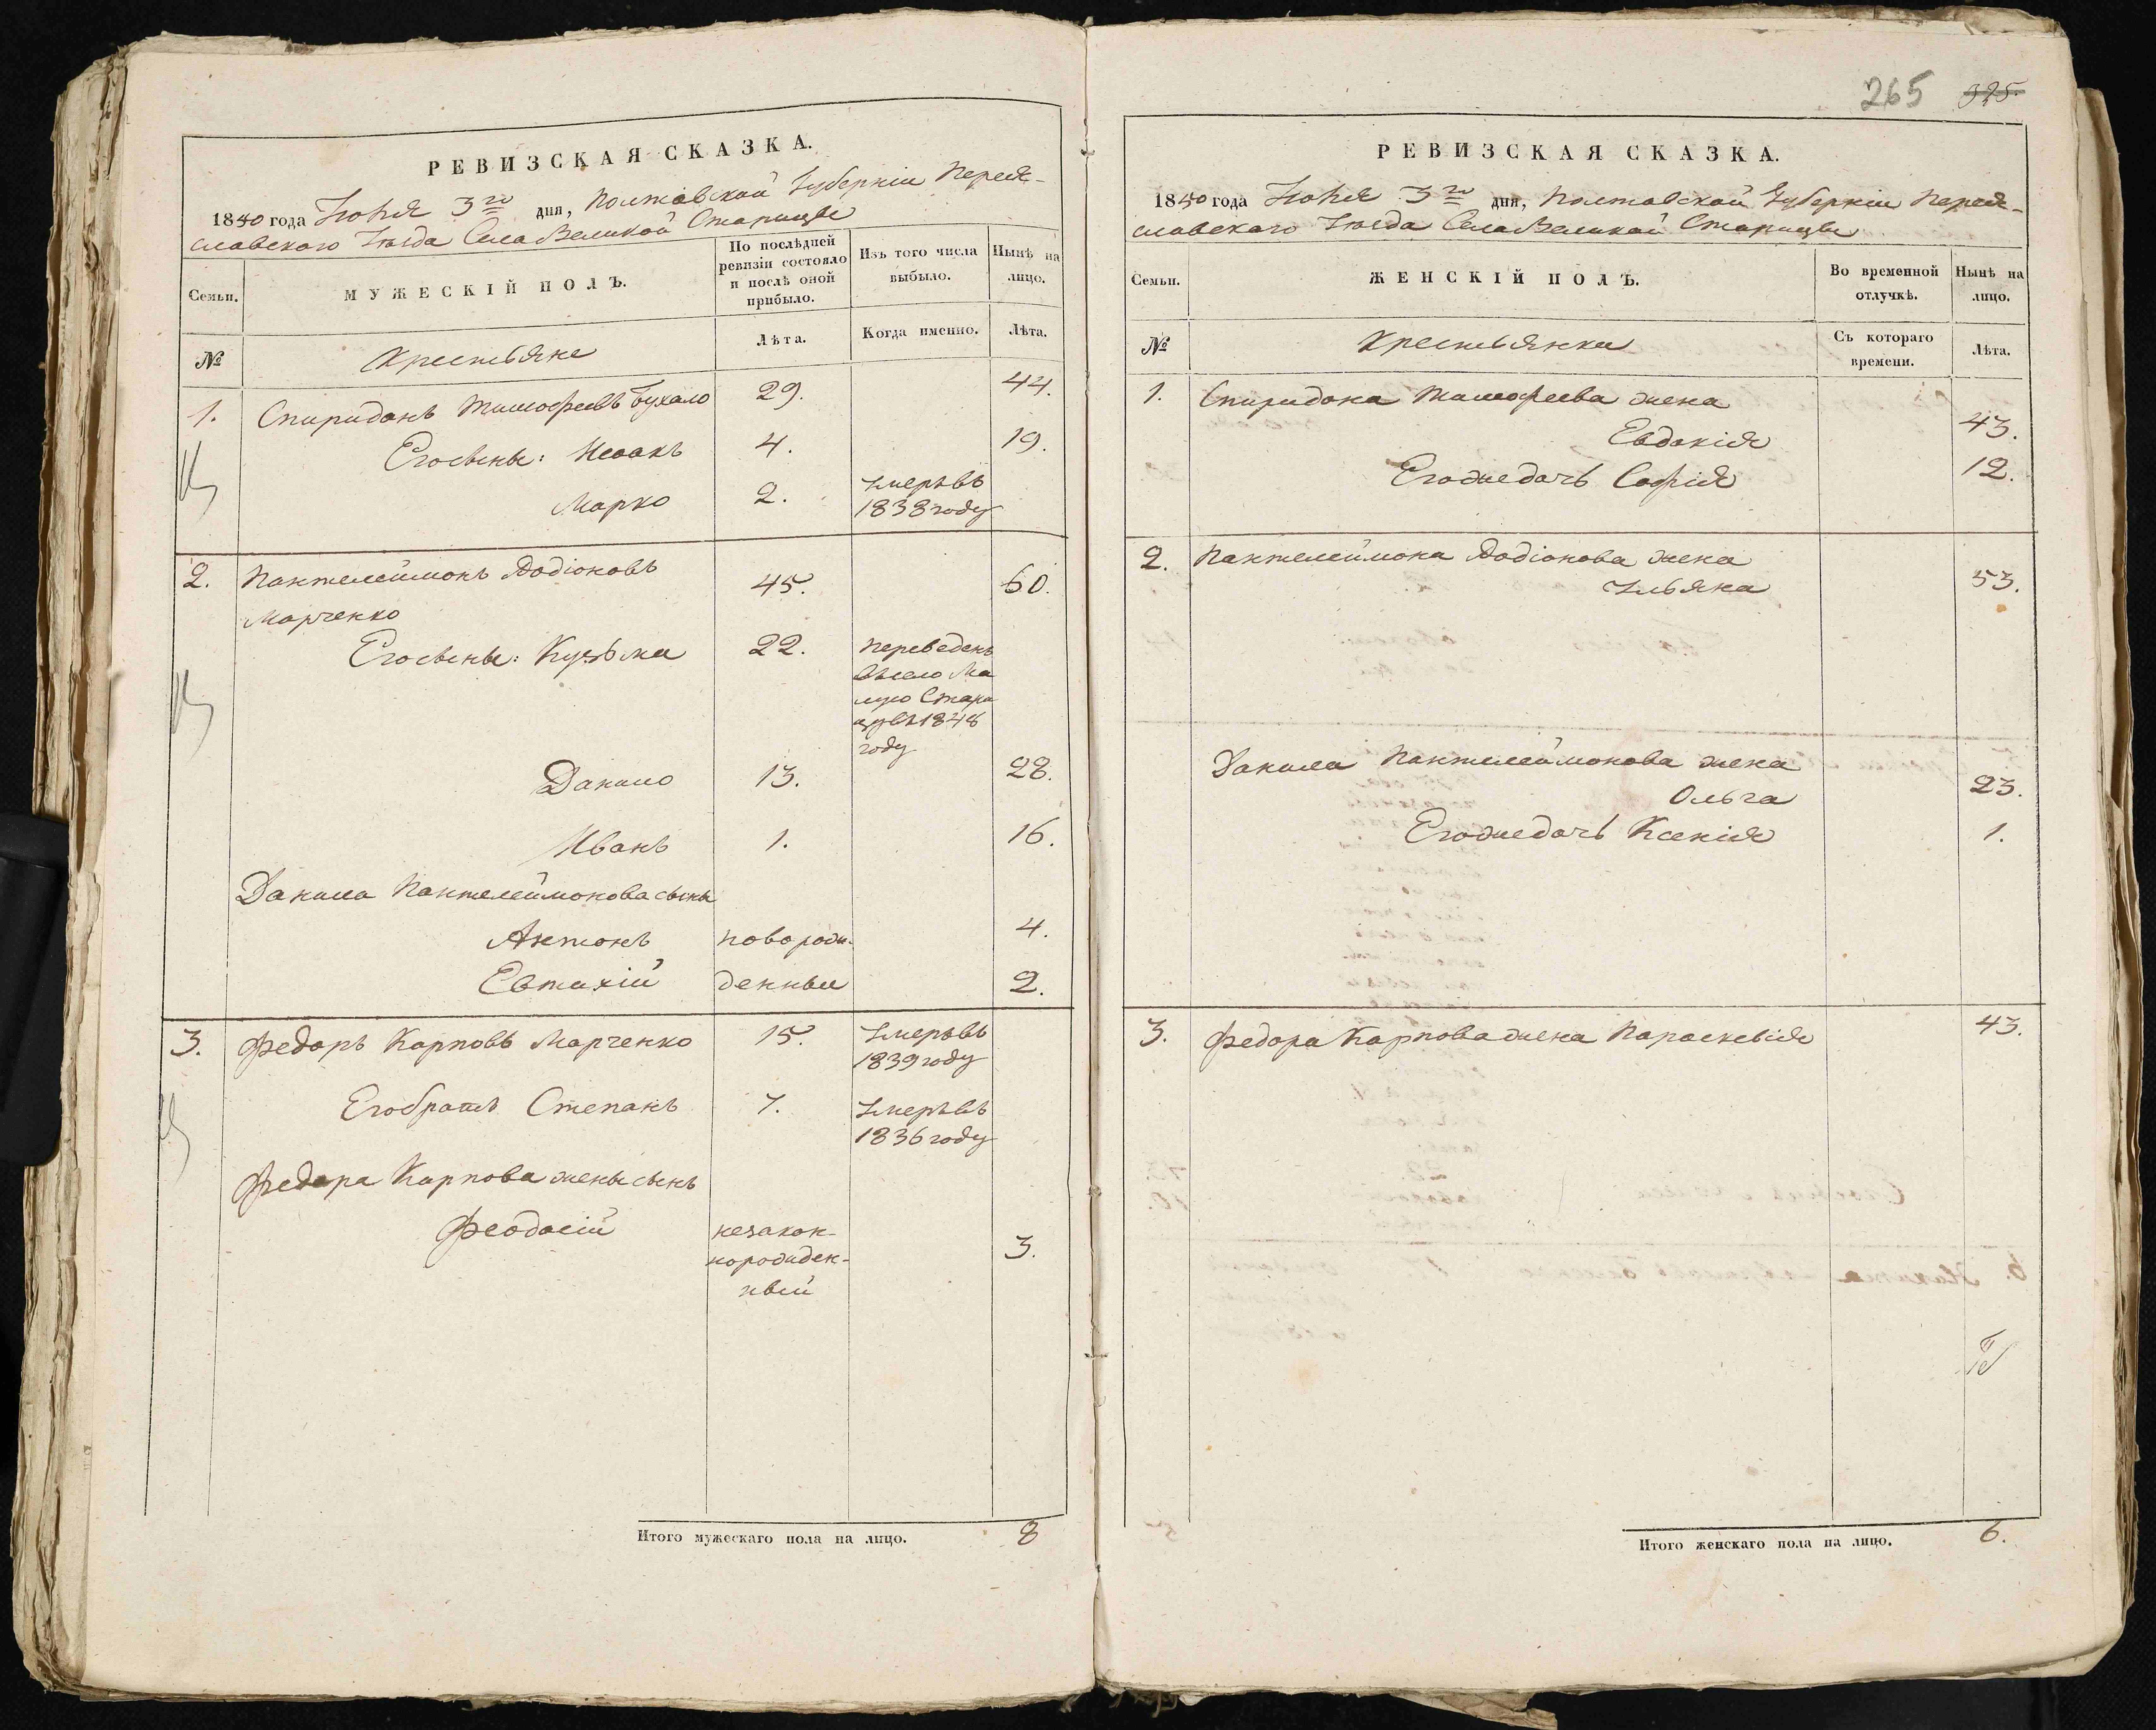 РЕВИЗСКАЯ СКАЗКА.
1850 года Іюня 3го дня, Полтавской Губерніи Перея-
славского Уѣзда Села Великой Старицы
Семьи.
МУЖЕСКІЙ ПОЛЪ.
По послѣдней ревизіи состояло и послѣ оной прибыло.
Изъ того числа выбыло.
Нынѣ на лицо.
№
Крестьяне
Лѣта.
Когда именно.
Лѣта.
1. Спиридонъ Тимофеевъ Бухало 29. 44.
Его сыны: Исаакъ 4. 19.
Марко 2. Умеръ въ
1838 году
2. Пантелеймонъ Родіоновъ 45. 60.
Марченко
Его сыны: Кузьма 22. Переведенъ
въ село Ма
лую Стари
цу въ 1848
году
Данило 13. 28.
Иванъ 1. 16.
Данила Пантелеймонова сыны
Антонъ новорож- 4.
Евтихій денные 2.
3. Федоръ Карповъ Марченко 15. Умеръ въ
1839 году
Его братъ Степанъ 7. Умеръ въ
1836 году
Федора Карпова жены сынъ
Феодосій незакон-
норожден- 3.
ный
Итого мужескаго пола на лицо. 8
265 325.
РЕВИЗСКАЯ СКАЗКА.
1850 года Іюня 3го дня, Полтавской Губерніи Перея-
славскаго Уѣзда Села Великой Старицы
Семьи.
ЖЕНСКІЙ ПОЛЪ.
Во временной отлучкѣ.
Нынѣ на лицо.
№
Крестьянки
Съ котораго времени.
Лѣта.
1. Спиридона Тимофеева жена
Евдокія 43.
Его же дочь Софія 12.
2. Пантелеймона Родіонова жена
Ульяна 53.
Данила Пантелеймонова жена
Ольга 23.
Его же дочь Ксенія 1.
3. Федора Карпова жена Параскевія 43.
Итого женскаго пола на лицо. 6.